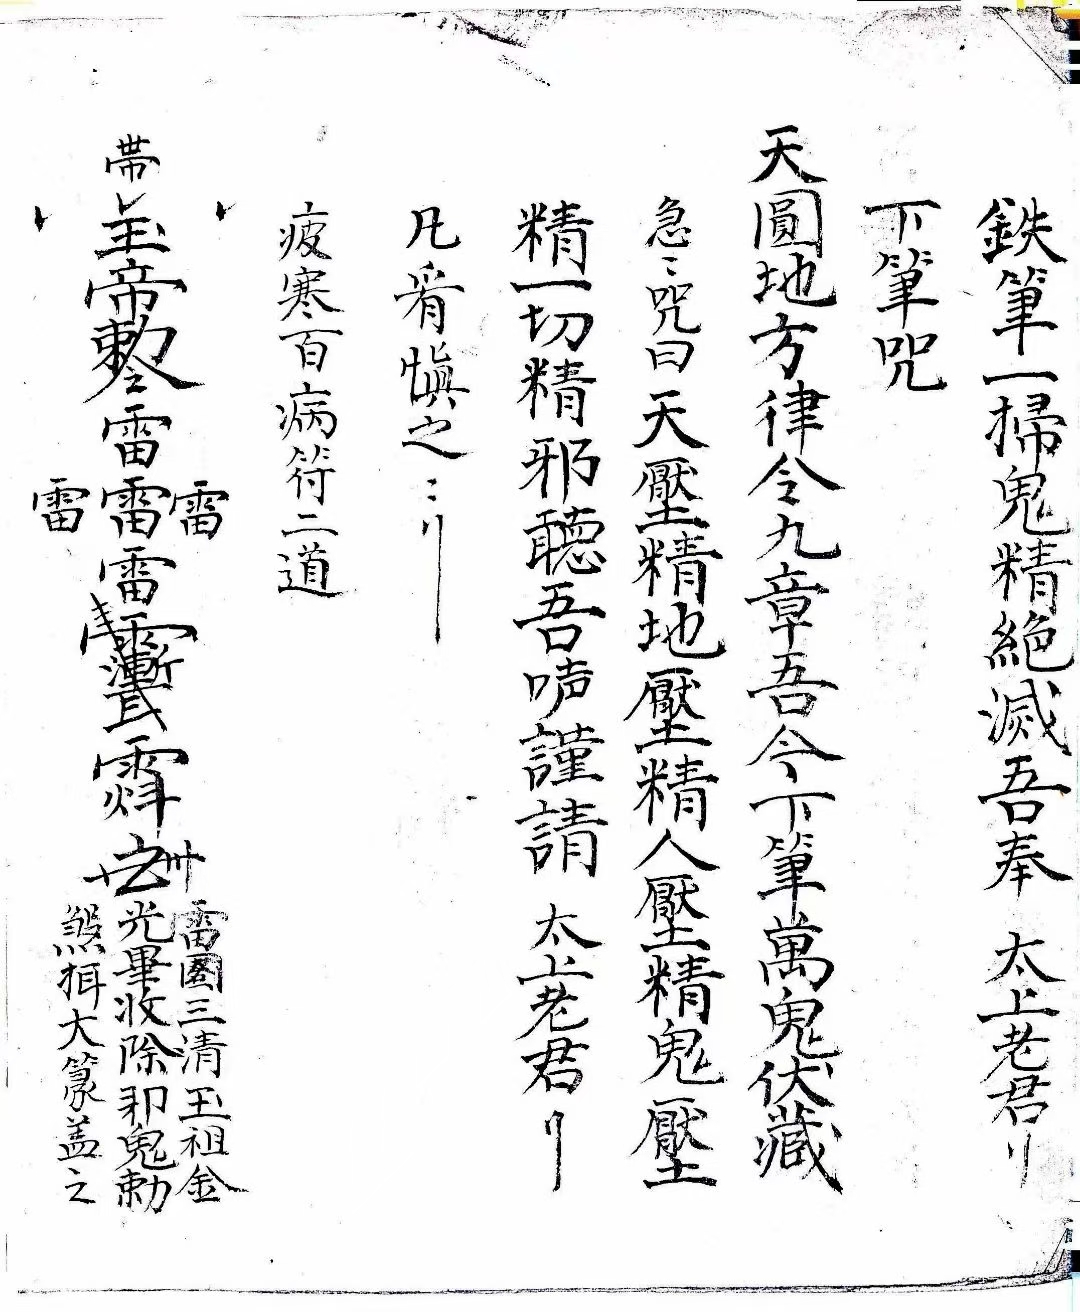 鉄筆一掃鬼精絶滅吾奉 太上老君刂
下筆咒
天圓地方律令九章吾今下筆萬鬼伏藏
急〻咒曰 天壓精地壓精人壓精鬼壓
精一切精邪聽吾声謹請 太上老君刂
凡 慎之〻刂
疲寒百病符二道
帶
玉帝勅令
雷
雷 雷 雷
雷
之
雷 三清玉祖金
光畢收除邪鬼勅
大篆盖之